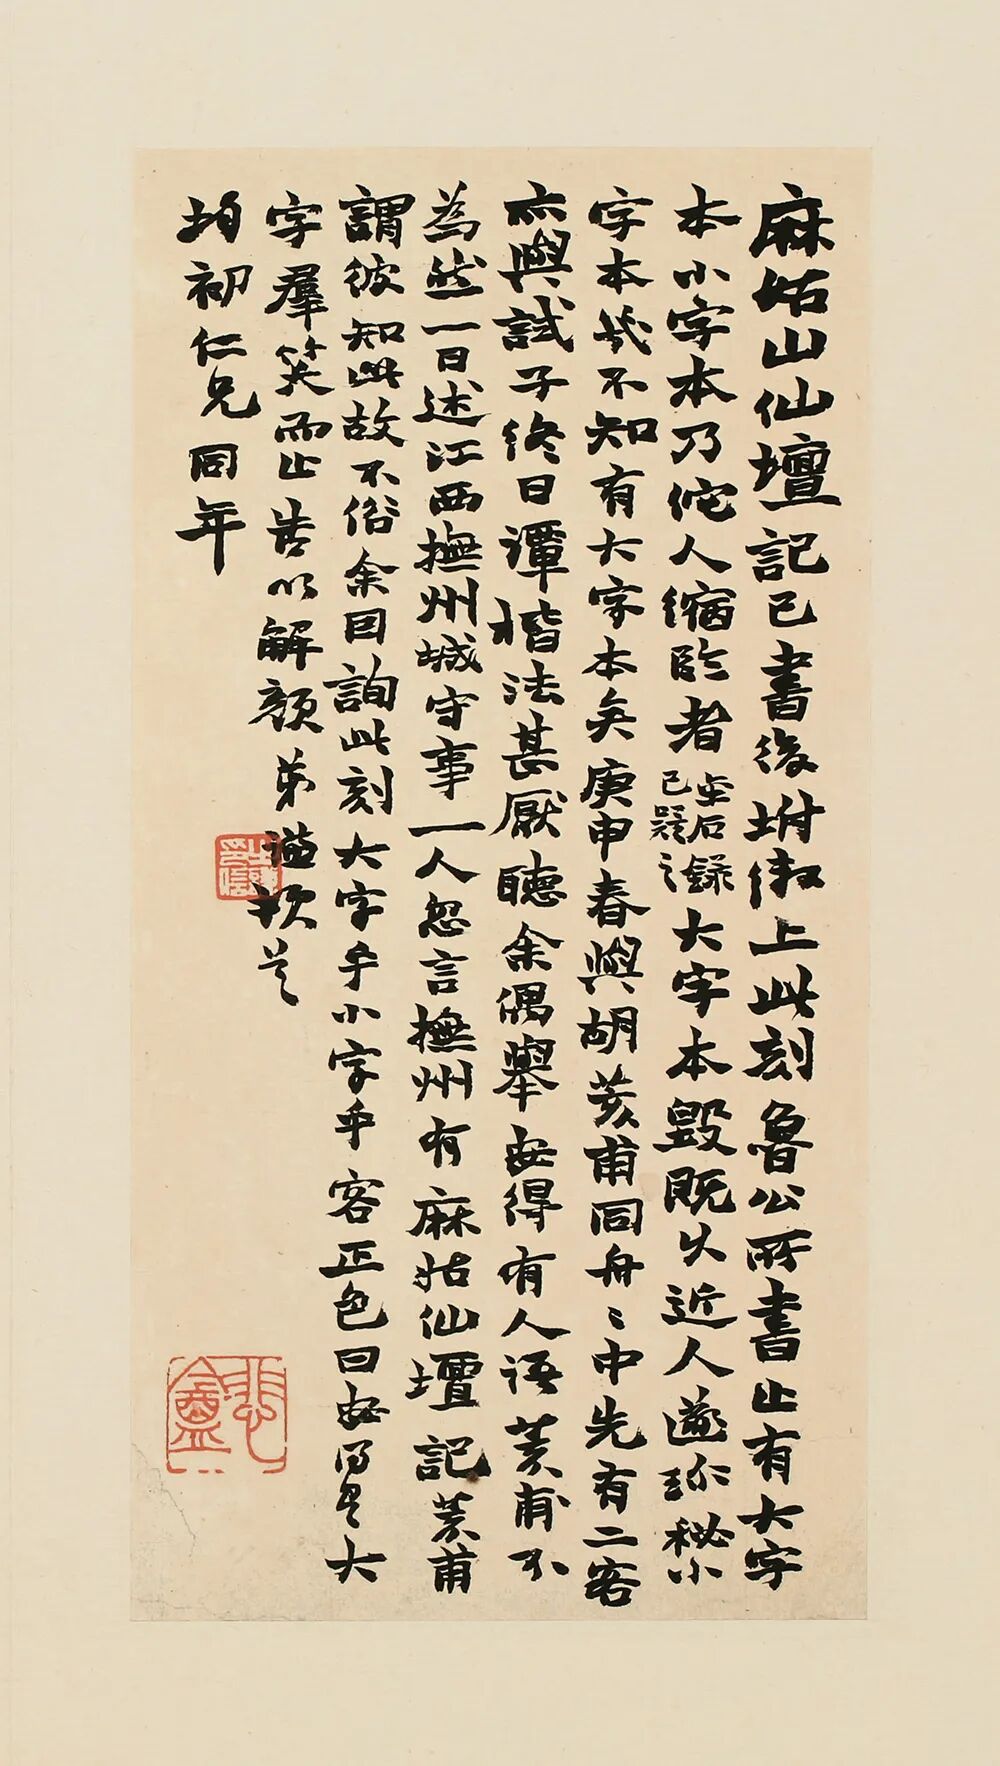 麻姑山仙壇記已書後坿緻上此刻魯公所書止有大字
本小字本乃佗人縮臨者金石錄已疑之大字本毀既久近人遂珍秘小
字本幾不知有大字本矣庚申春與胡荄甫同舟〻中先有二客
亦與試子終日譚楷法甚厭聽余偶舉安得有人語荄甫不
為然一日述江西撫州城守事一人忽言撫州有麻姑仙壇記荄甫
謂彼知此故不俗余因詢此刻大字乎小字乎客正色曰安得是大
字羣笑而止告以解顏弟之謙頓首
均初仁兄同年